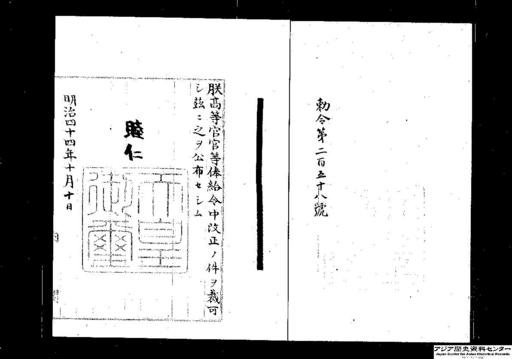 勅令第二百五十八號
朕高等官官等俸給令中改正ノ件ヲ裁可
シ茲ニ之ヲ公布セシム
睦仁
天皇御璽
明治四十四年十月十日
アジア歴史資料センター
Japan Center for Asian Historical Records